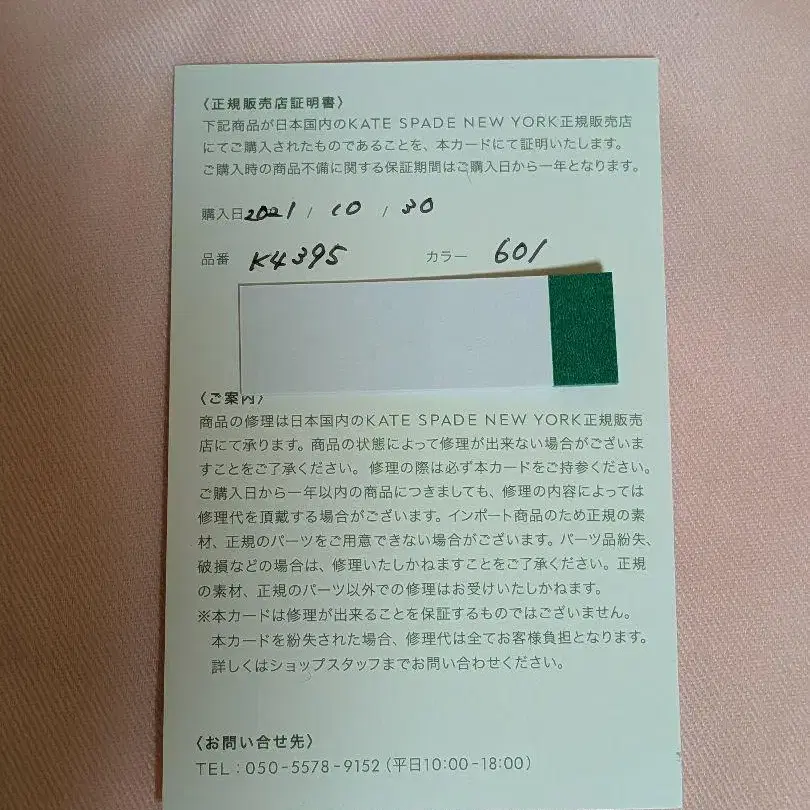 〈正規販売店証明書〉
下記商品が日本国内のKATE SPADE NEW YORK正規販売店
にてご購入されたものであることを、本カードにて証明いたします。
ご購入時の商品不備に関する保証期間はご購入日から一年となります。
購入日2021 / 10 / 30
品番 K4395 カラー 601
〈ご案内〉
商品の修理は日本国内のKATE SPADE NEW YORK正規販売
店にて承ります。商品の状態によって修理が出来ない場合がございま
すことをご了承ください。修理の際は必ず本カードをご持参ください。
ご購入日から一年以内の商品につきましても、修理の内容によっては
修理代を頂戴する場合がございます。インポート商品のため正規の素
材、正規のパーツをご用意できない場合がございます。パーツ品紛失、
破損などの場合は、修理いたしかねますことをご了承ください。正規
の素材、正規のパーツ以外での修理はお受けいたしかねます。
※本カードは修理が出来ることを保証するものではございません。
本カードを紛失された場合、修理代は全てお客様負担となります。
詳しくはショップスタッフまでお問い合わせください。
〈お問い合せ先〉
TEL：050-5578-9152（平日10:00-18:00）